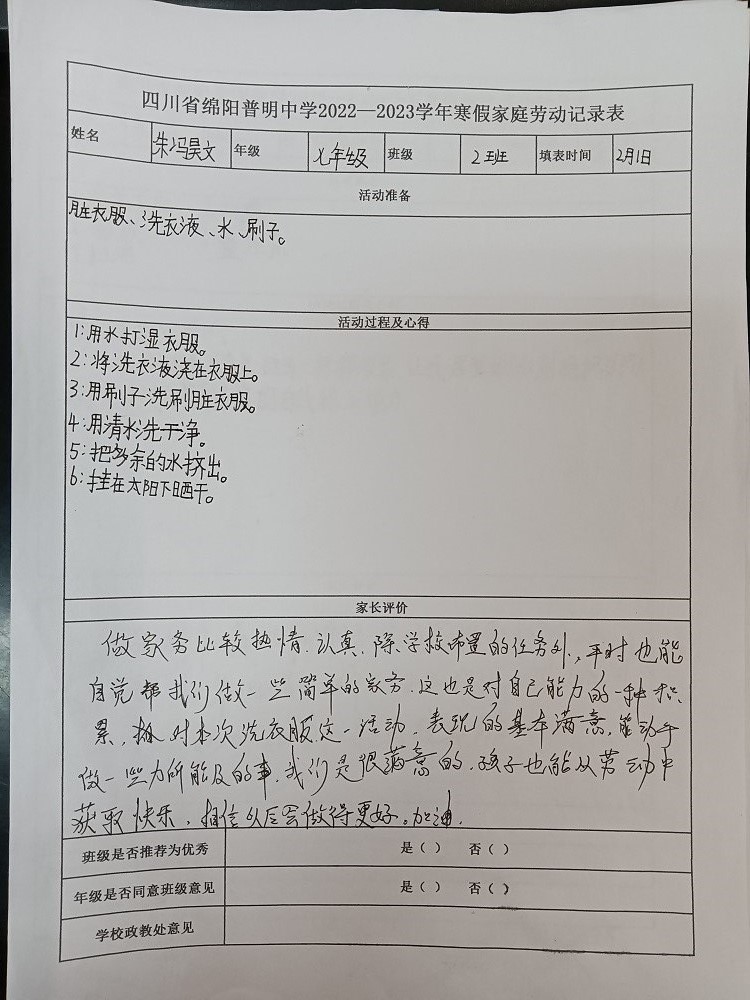 四川省绵阳普明中学2022—2023学年寒假家庭劳动记录表
姓名 朱冯昊文 年级 七年级 班级 2班 填表时间 2月1日
活动准备
脏衣服、洗衣液、水、刷子。
活动过程及心得
1:用水打湿衣服。
2:将洗衣液浇在衣服上。
3:用刷子洗刷脏衣服。
4:用清水洗干净。
5:把多余的水挤出。
6:挂在太阳下晒干。
家长评价
做家务比较热情、认真，除学校布置的任务外，平时也能
自觉帮我们做一些简单的家务，这也是对自己能力的一种积
累，对本次洗衣服这一活动，表现的基本满意，能动手
做一些力所能及的事，我们是很满意的，孩子也能从劳动中
获取快乐，相信以后会做得更好。加油.
班级是否推荐为优秀 是( ) 否( )
年级是否同意班级意见 是( ) 否( )
学校政教处意见